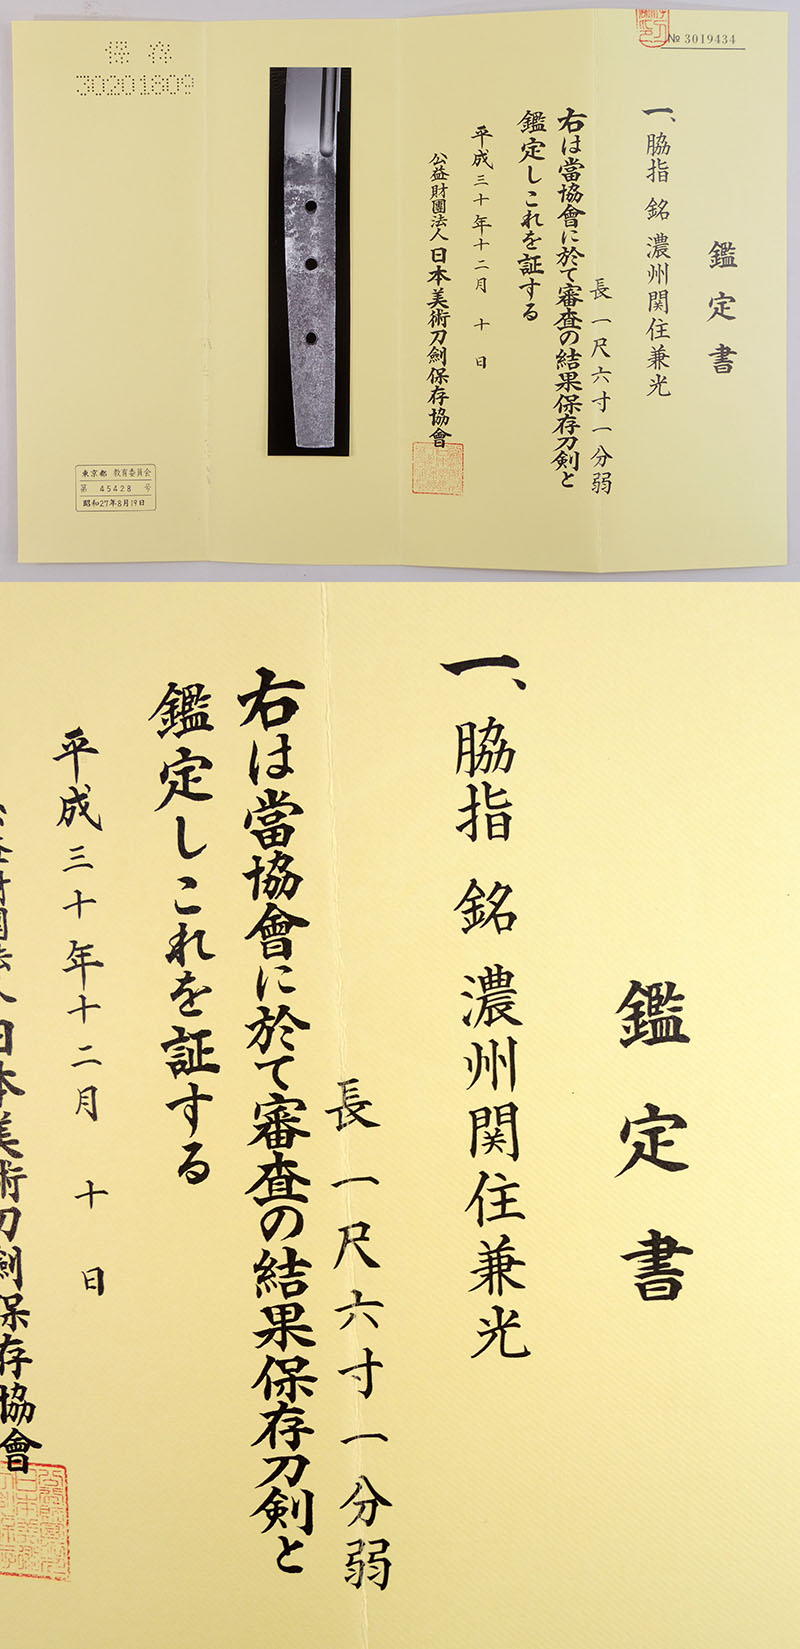 № 3019434
鑑定書
一、脇指 銘 濃州関住兼光
長 一尺六寸一分弱
右は當協會に於て審査の結果保存刀剣と
鑑定しこれを証する
平成三十年十二月 十 日
公益財團法人 日本美術刀劍保存協會
保存
30201809
東京都 教育委員会
第 45428 号
昭和27年8月19日
鑑定書
一、脇指 銘 濃州関住兼光
長 一尺六寸一分弱
右は當協會に於て審査の結果保存刀剣と
鑑定しこれを証する
平成三十年十二月 十 日
公益財團法人 日本美術刀劍保存協會